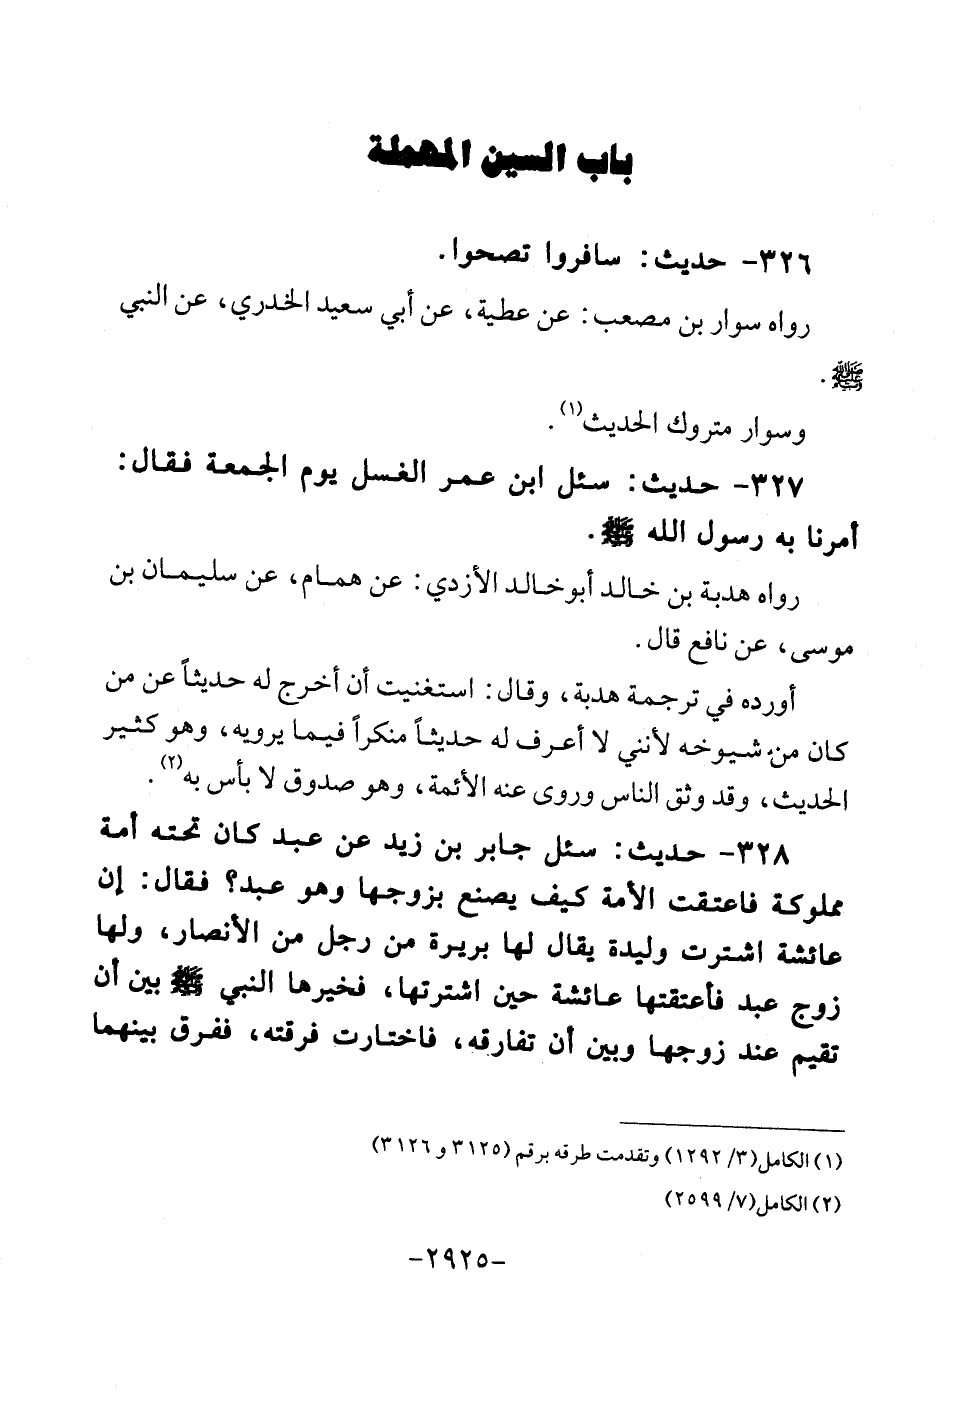 باب السين المهملة
٣٢٦- حديث: سافروا تصحوا.
رواه سوار بن مصعب: عن عطية، عن أبي سعيد الخدري، عن النبي
ﷺ.
وسوار متروك الحديث(١).
٣٢٧- حديث: سئل ابن عمر الغسل يوم الجمعة فقال:
أمرنا به رسول الله ﷺ.
رواه هدبة بن خالد أبوخالد الأزدي: عن همام، عن سليمان بن
موسى، عن نافع قال.
أورده في ترجمة هدبة، وقال: استغنيت أن أخرج له حديثاً عن من
كان من شيوخه لأنني لا أعرف له حديثاً منكراً فيما يرويه، وهو كثير
الحديث، وقد وثق الناس وروى عنه الأئمة، وهو صدوق لا بأس به(٢).
٣٢٨- حديث: سئل جابر بن زيد عن عبد كان تحته أمة
مملوكة فاعتقت الأمة كيف يصنع بزوجها وهو عبد؟ فقال: إن
عائشة اشترت وليدة يقال لها بريرة من رجل من الأنصار، ولها
زوج عبد فأعتقتها عائشة حين اشترتها، فخيرها النبي ﷺ بين أن
تقيم عند زوجها وبين أن تفارقه، فاختارت فرقته، ففرق بينهما
(١) الكامل(٣/ ١٢٩٢) وتقدمت طرقه برقم (٣١٢٥ و ٣١٢٦)
(٢) الكامل(٧/ ٢٥٩٩)
-٢٩٢٥-